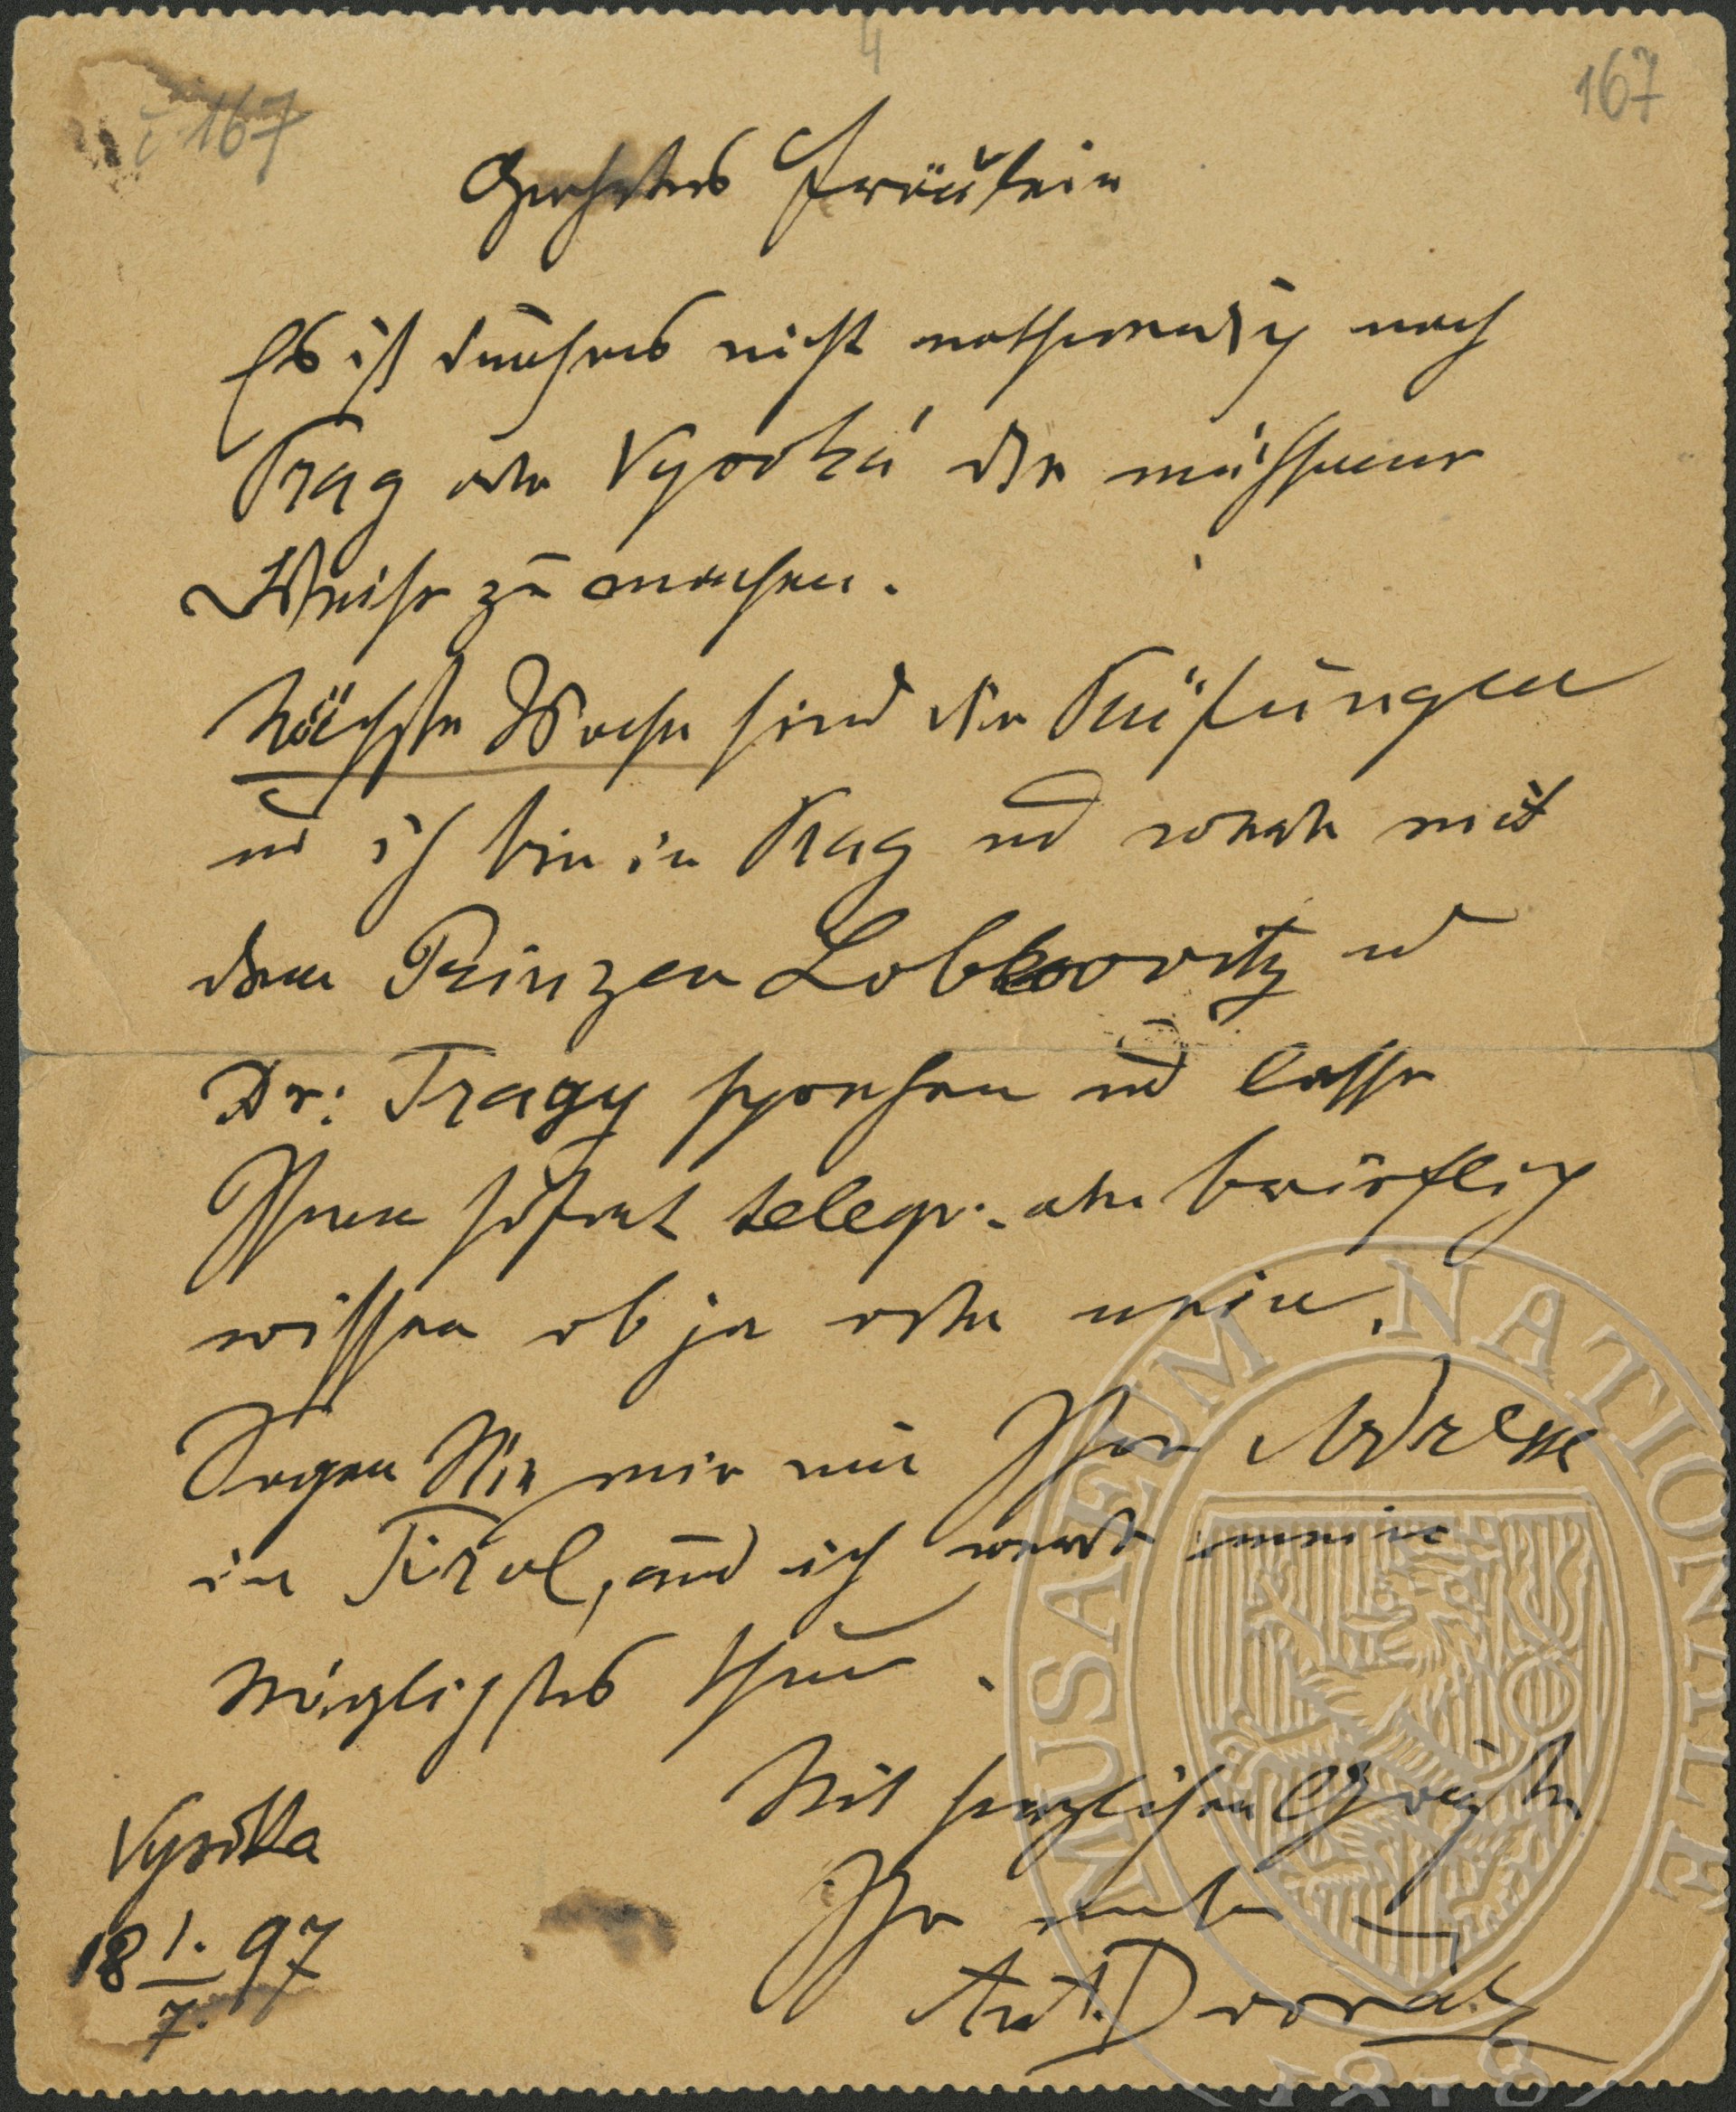 4
č 167
167
Geehrtes Fräulein
Es ist durchaus nicht nothwendig nach
Prag oder Vysoká die mühsame
Reise zu machen.
Nächste Woche sind die Prüfungen
und ich bin in Prag und werde mit
dem Prinzen Lobkovitz und
Dr: Tragy sprechen und lasse
Ihnen sofort telegr. oder brieflich
wissen ob ja oder nein.
Sagen Sie mir nur Ihre Adresse
in Tirol, und ich werde mein
Möglichstes thun.
Mit herzlichen Grüßen
Ihr
Ant. Dvořák
Vysoka
18 1./7. 97
MUSAEUM NATIONALE
1818